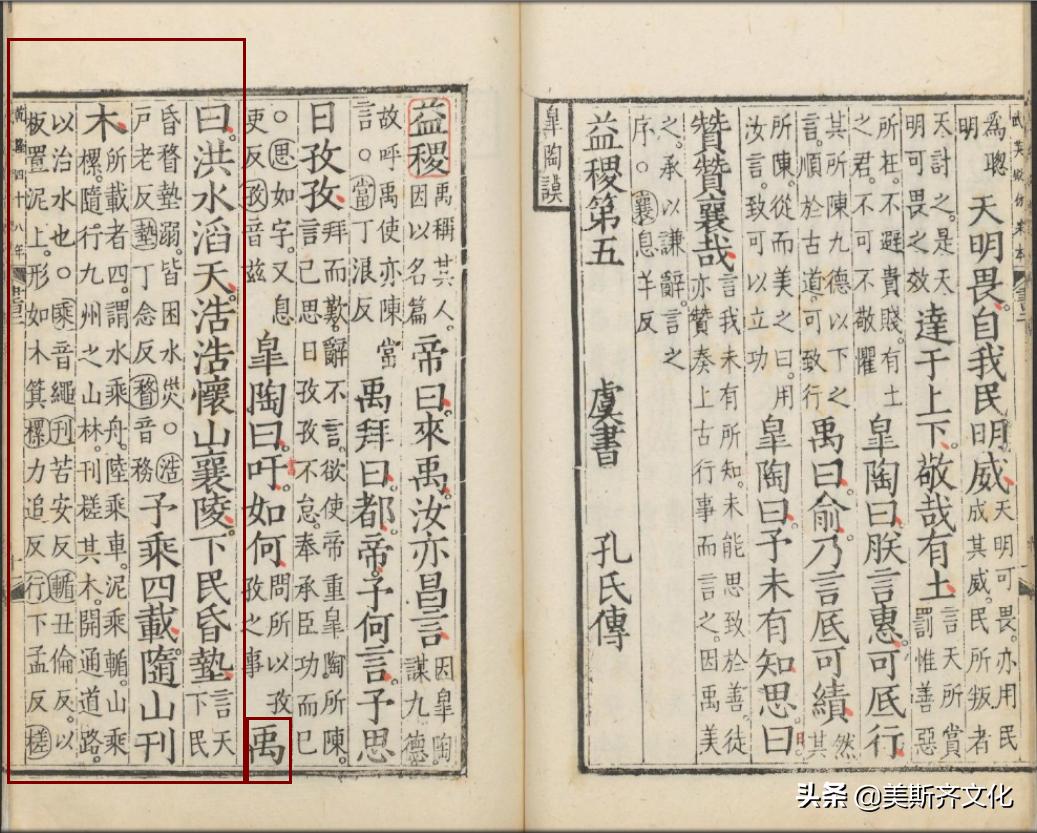 武英殿仿宋本
爲聰
明
天明畏自我民明威
天明可畏亦用民
成其威民所叛者
天討之是天
明可畏之效
達于上下敬哉有土
言天所賞
罰惟善惡
所枉不避貴賤有土
之君不可不敬懼
皐陶曰朕言惠可厎行
其所陳九德以下之
言順於古道可致行
禹曰俞乃言厎可績
然
其
所陳從而美之曰用
汝言致可以立功
皐陶曰予未有知思曰
贊贊襄哉
言我未有所知未能思致於善徒
亦贊奏上古行事而言之因禹美
之承以謙辭言之
序○襄息羊反
益稷第五 虞書 孔氏傳
皐陶謨
益稷
禹稱其人
因以名篇
帝曰來禹汝亦昌言
因皐陶
謀九德
故呼禹使亦陳當
言○當丁浪反
禹拜曰都帝予何言予思
日孜孜
拜而歎辭不言欲使帝重皐陶所陳
言己思日孜孜不怠奉承臣功而已
○思如字又息
吏反孜音茲
皐陶曰吁如何
問所以孜
孜之事
禹
曰洪水滔天浩浩懷山襄陵下民昏墊
言天
下民
昏瞀墊溺皆困水災○浩
戶老反墊丁念反瞀音務
予乘四載隨山刊
木
所載者四謂水乘舟陸乘車泥乘輴山乘
樏隨行九州之山林刊槎其木開通道路
以治水也○乘音繩刊苦安反輴丑倫反以
板置泥上形如木箕樏力追反行下孟反槎
頭条 @美斯齐文化